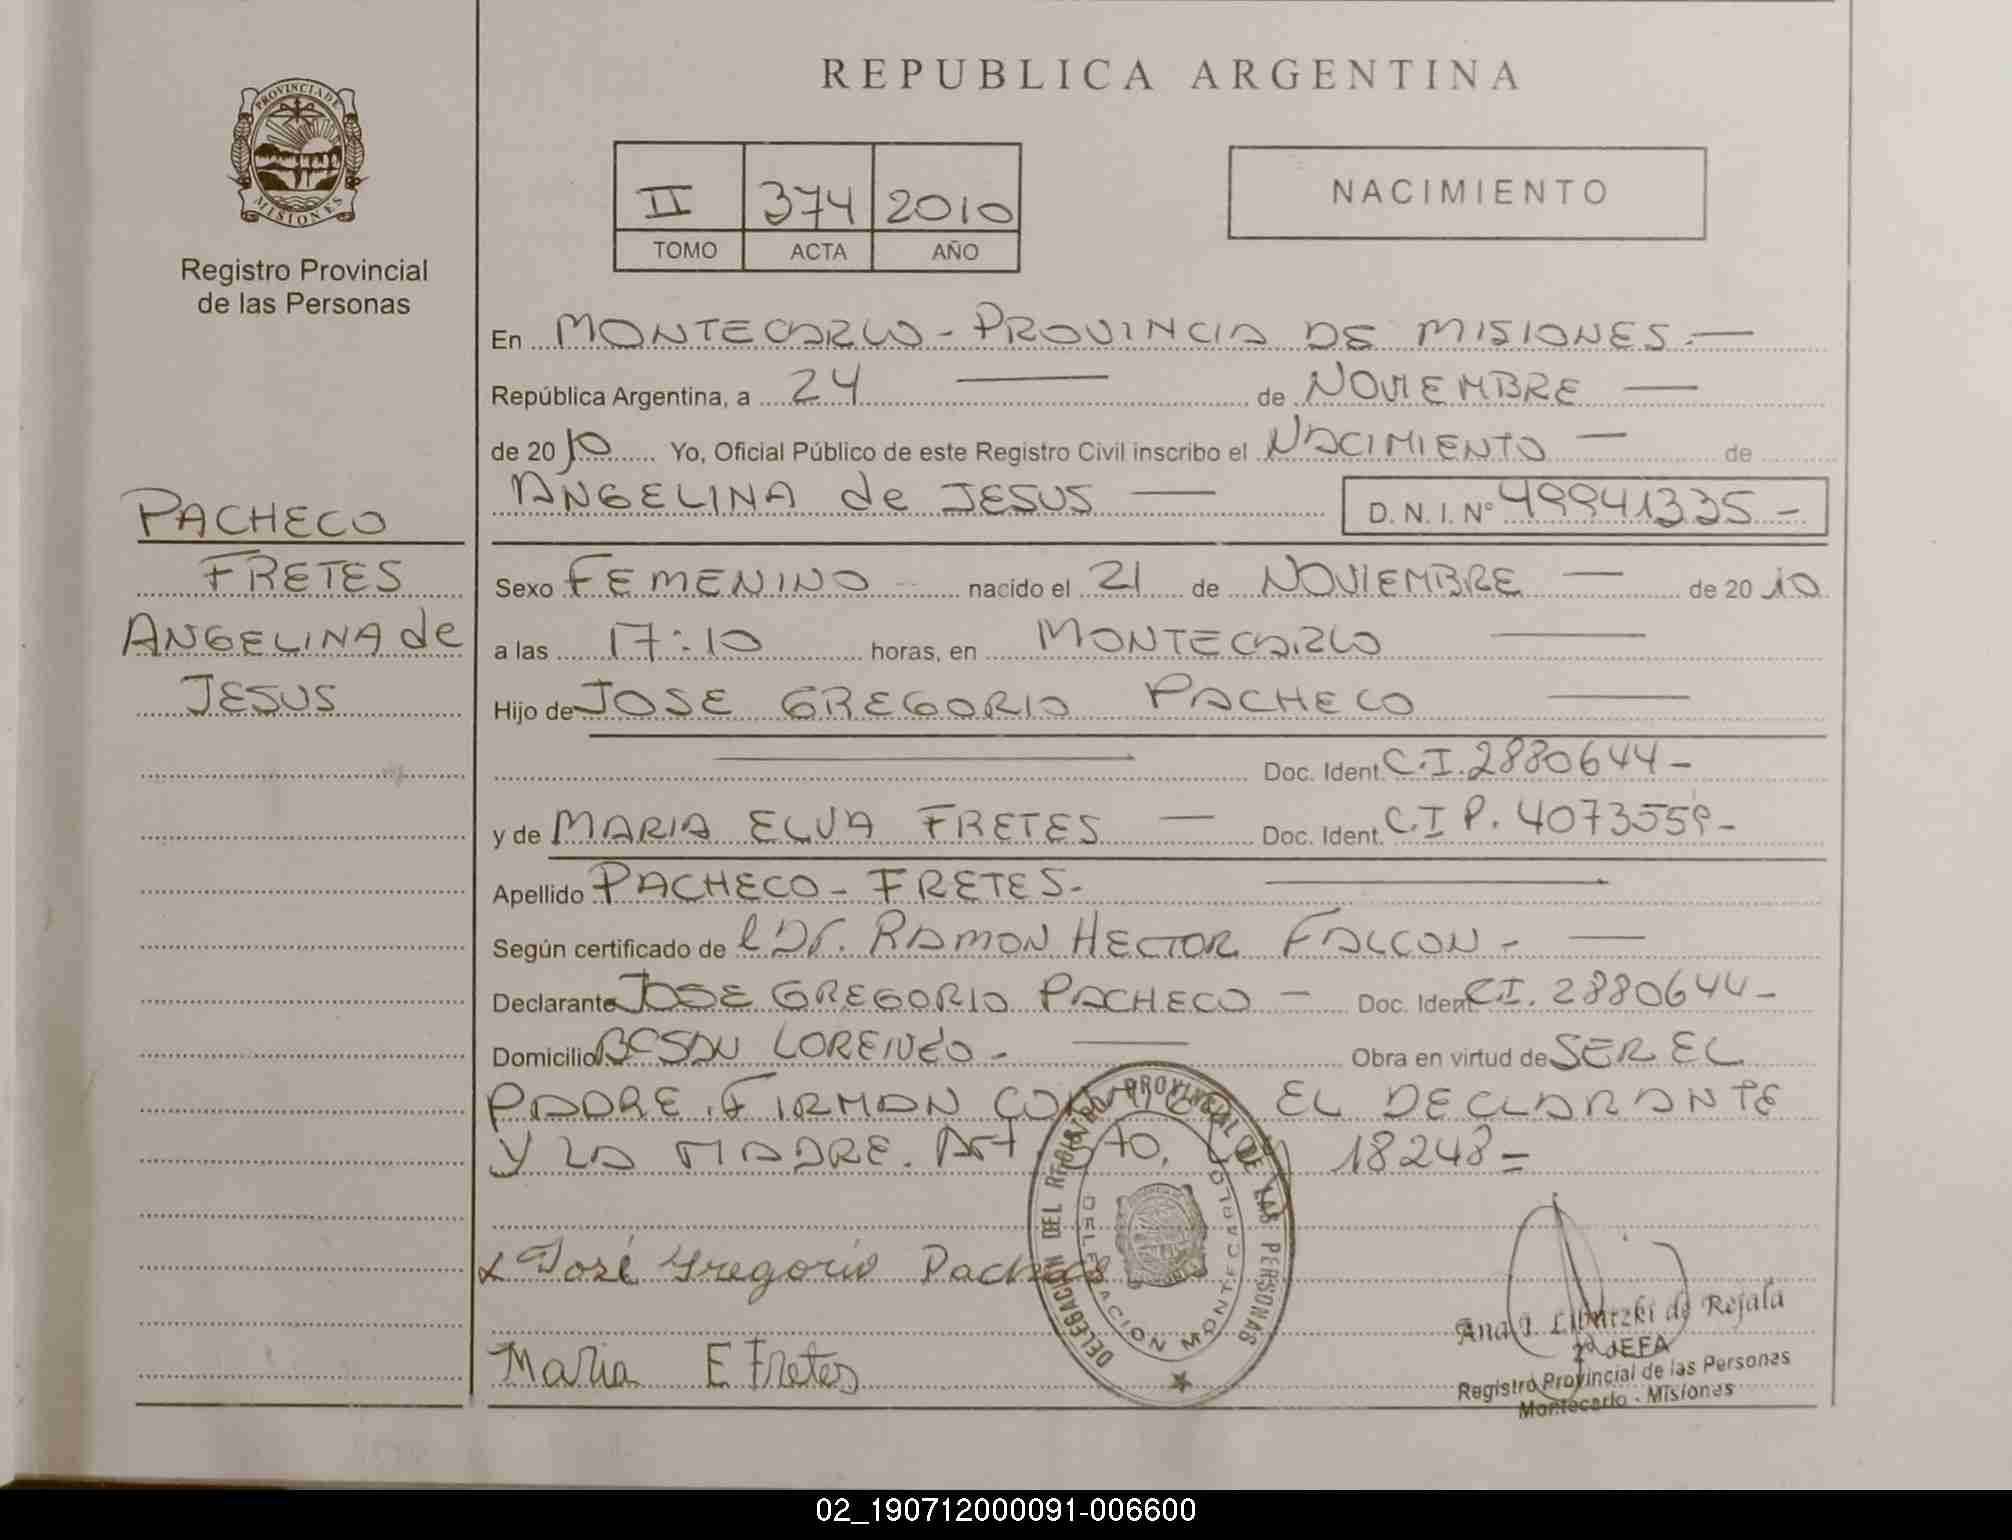 REPUBLICA ARGENTINA
PROVINCIA DE
MISIONES
Registro Provincial
de las Personas
II 374 2010
TOMO ACTA AÑO
NACIMIENTO
En MONTECARLO - PROVINCIA DE MISIONES. —
República Argentina, a 24 — de NOVIEMBRE —
de 2010 Yo, Oficial Público de este Registro Civil inscribo el NACIMIENTO — de
ANGELINA de JESUS — D.N.I. N° 49941335 -
PACHECO
FRETES
ANGELINA de
JESUS
Sexo FEMENINO nacido el 21 de NOVIEMBRE — de 2010
a las 17:10 horas, en MONTECARLO —
Hijo de JOSE GREGORIO PACHECO —
— Doc. Ident. C.I. 2880644 -
y de MARIA ELVA FRETES — Doc. Ident. C.I P. 4073559 -
Apellido PACHECO - FRETES. —
Según certificado de l Dr. RAMON HECTOR FALCON - —
Declarante JOSE GREGORIO PACHECO - Doc. Ident. C.I. 2880644 -
Domicilio BºSAN LORENZO - — Obra en virtud de SER EL
PADRE. FIRMAN EL DECLARANTE
Y LA MADRE. Art 18248 =
x José Gregorio Pacheco
Maria E Fretes
DELEGACION DEL REGISTRO PROVINCIAL DE LAS PERSONAS
DELEGACION MONTECARLO
de Rejala
2ª JEFA
Registro Provincial de las Personas
Montecarlo - Misiones
02_190712000091-006600